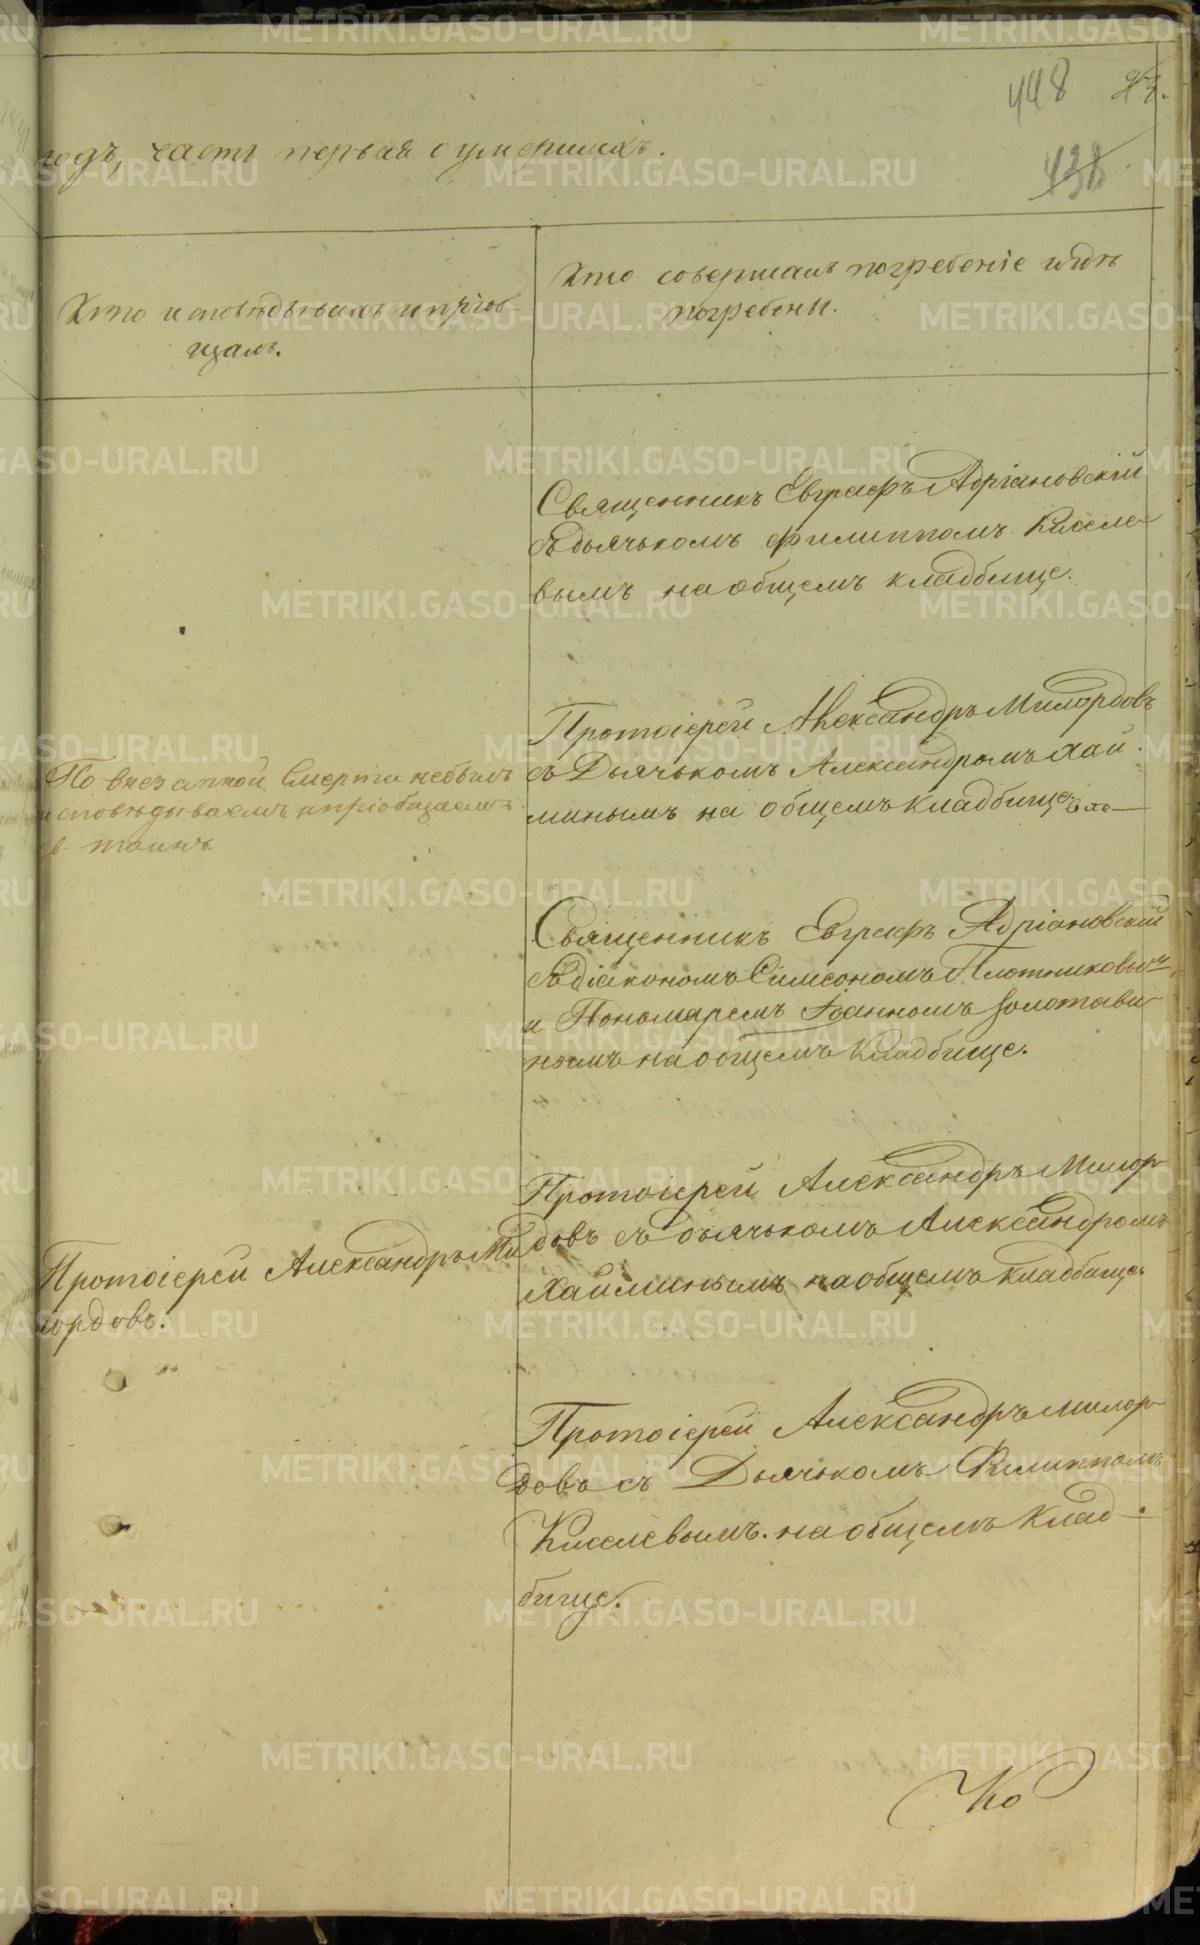 448
438
годъ, часть первая о умершихъ.
Кто исповѣдывалъ и пріоб-
щалъ.
Кто совершалъ погребеніе и гдѣ
погребены.
Священникъ Евграфъ Адріановскій
съ дьячькомъ Филиппомъ Кисѣле-
вымъ на общемъ кладбище.
По внезапной смерти небылъ
исповѣдываемъ и пріобщаемъ
в. таинъ
Протоіерей Александръ Милордовъ
съ Дьячькомъ Александромъ Хай-
минымъ на общемъ кладбище
Священникъ Евграфъ Адріановскій
съ діакономъ Симеономъ Плотниковымъ
и Пономаремъ Іоанномъ Золотави-
нымъ на общемъ кладбище.
Протоіерей Александръ Ми-
лордовъ.
Протоіерей Александръ Милор-
довъ съ дьячькомъ Александромъ
Хайминымъ на общемъ кладбище.
Протоіерей Александръ Милор-
довъ съ Дьячькомъ Филиппомъ
Киселевымъ. на общемъ клад-
бище.
METRIKI.GASO-URAL.RU